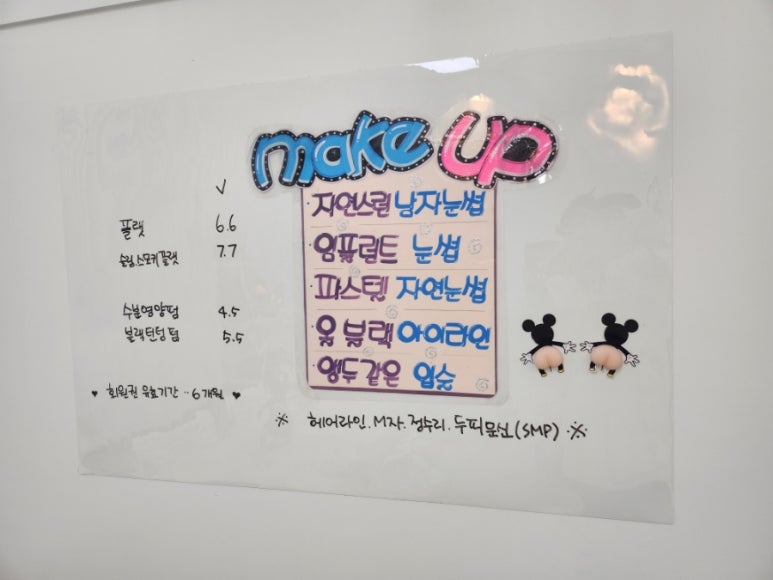 make up
자연스런 남자눈썹
임프란트 눈썹
파스텔 자연눈썹
올 블랙 아이라인
앵두같은 입술
V
플랫 6.6
7.7
수분영양펌 4.5
블랙틴팅펌 5.5
♥ 회원권 유효기간 ·· 6개월 ♥
※ 헤어라인. M자. 정수리. 두피문신(SMP) ※